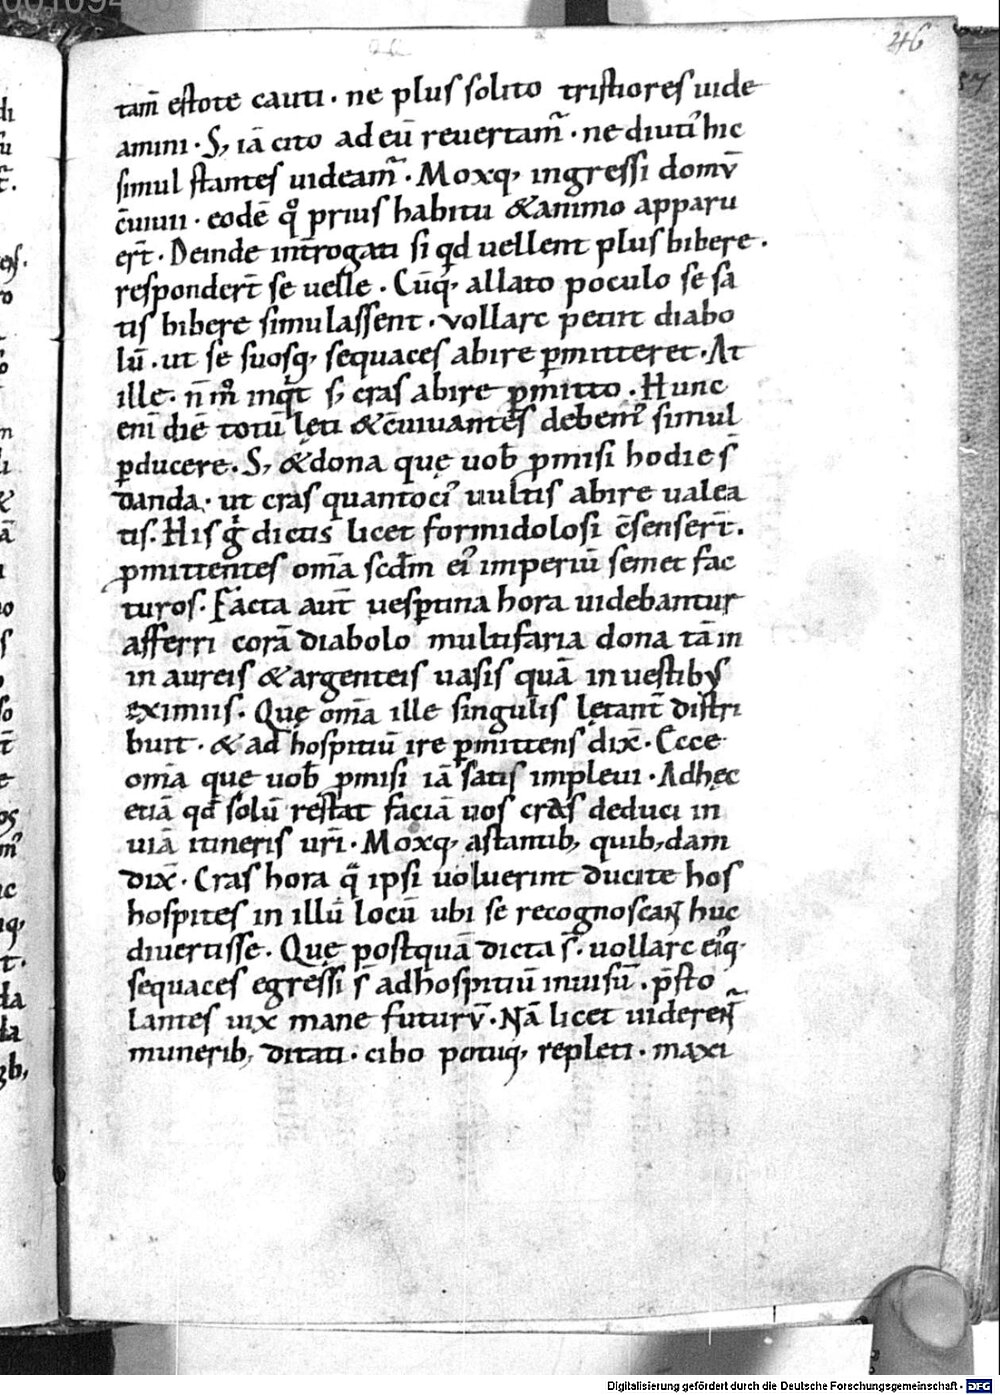 46
tam̄ estote cauti · ne plus solito tristiores uide
amini · S; iā cito ad eū reuertam̄ · ne diuti᾽ hic
simul stantes uideam̄ · Moxq; ingressi domū
c̄uiuii · eodē q° prius habitu &animo apparu
er̄t · Deinde int̄rogati si qd̄ uellent plus bibere ·
responder̄t se uelle · Cūq; allato poculo se sa
tis bibere simulassent · vollarc petiit diabo
lū · ut se suosq; sequaces abire ꝑmitteret · At
ille · n̄ m° inqͥt s; cras abire ꝑmitto · Hunc
eni diē totū lęti &c̄uiuantes debem᾽ simul
ꝑducere · S; &dona quę uob̄ ꝓmisi hodie s̄
danda · ut cras quantoci᾽ uultis abire ualea
tis · His gͦ dictis licet formidolosi c̄senser̄t ·
ꝓmittentes om̄a scd̄m ei᾽ imperiū semet fac
turos · Facta aut̄ uesꝑtina hora uidebantur
afferri corā diabolo multifaria dona tā in
in aureis &argenteis uasis quā in uestibus
eximiis · Quę om̄a ille singulis lętant̄ distri
buit · &ad hospitiū ire ꝑmittens dix̄ · Ecce
om̄a que uob̄ ꝓmisi iā satis impleui · Adhęc
etiā qd̄ solū restat faciā uos cras deduci in
uiā itineris uri̅ · Moxq; astantib; quib;dam
dix̄ · Cras hora qͣ ipsi uoluerint ducite hos
hospites in illū locū ubi se recognoscaꝴ huc
diuertisse · Quę postquā dicta s̄ · vollarc ei᾽q;
sequaces egressi s̄ adhospitiū inuisū · p̄sto
lantes uix mane futurū · Nā licet uidereꝴ̄
munerib; ditati · cibo potuq; repleti · maxi
Digitalisierung gefördert durch die Deutsche Forschungsgemeinschaft - DFG